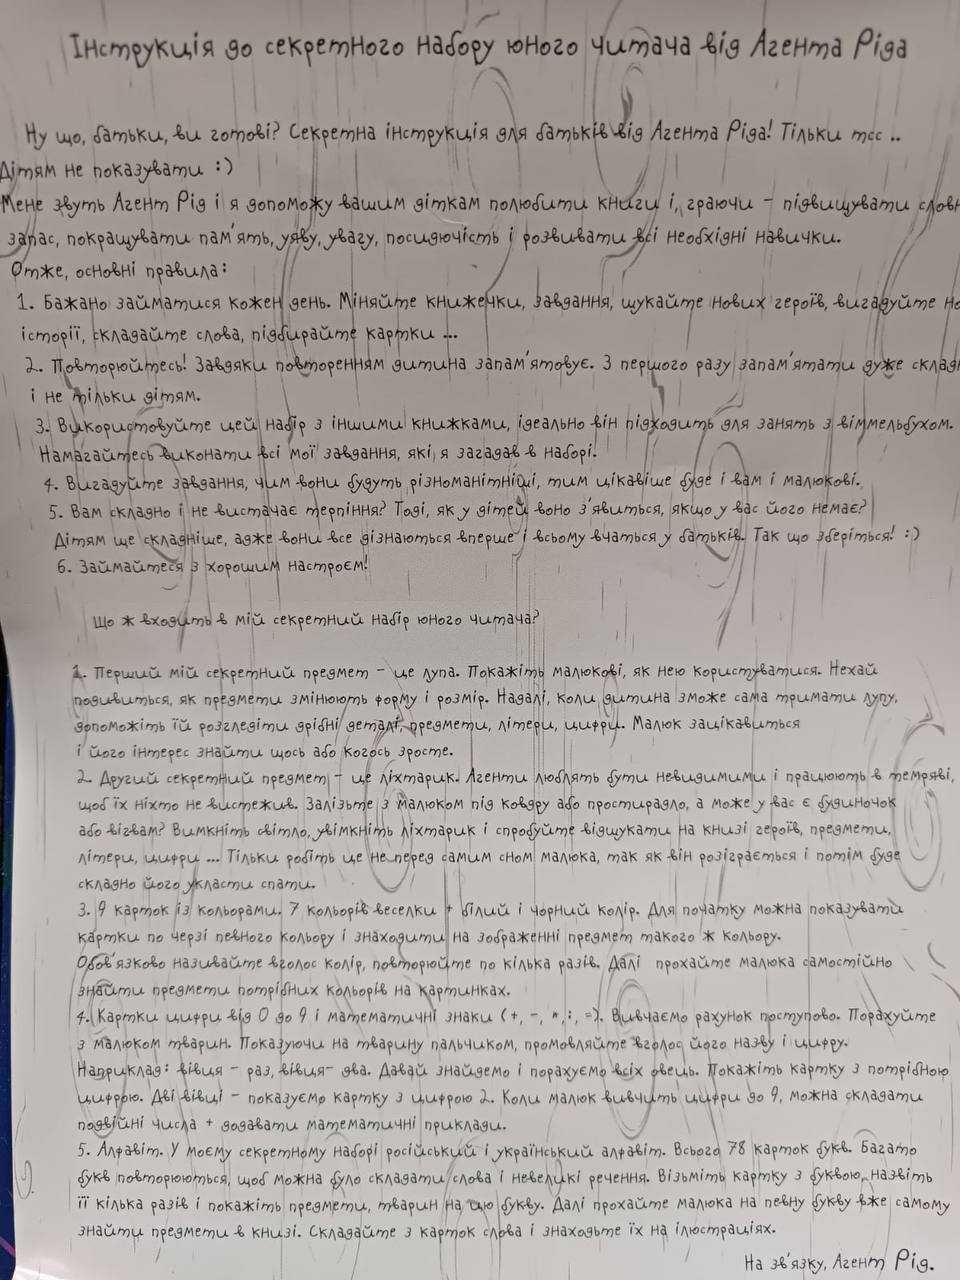 Інструкція до секретного набору юного читача від Агента Ріда
Ну що, батьки, ви готові? Секретна інструкція для батьків від Агента Ріда! Тільки тсс ..
Дітям не показувати :)
Мене звуть Агент Рід і я допоможу вашим діткам полюбити книги і, граючи - підвищувати словн
запас, покращувати пам'ять, уяву, увагу, посидючість і розвивати всі необхідні навички.
Отже, основні правила:
1. Бажано займатися кожен день. Міняйте книжечки, завдання, шукайте нових героїв, вигадуйте но
історії, складайте слова, підбирайте картки ...
2. Повторюйтесь! Завдяки повторенням дитина запам'ятовує. З першого разу запам'ятати дуже склад
і не тільки дітям.
3. Використовуйте цей набір з іншими книжками, ідеально він підходить для занять з віммельбухом.
Намагайтесь виконати всі мої завдання, які я загадав в наборі.
4. Вигадуйте завдання, чим вони будуть різноманітніші, тим цікавіше буде і вам і малюкові.
5. Вам складно і не вистачає терпіння? Тоді, як у дітей воно з'явиться, якщо у вас його немає?
Дітям ще складніше, адже вони все дізнаються вперше і всьому вчаться у батьків. Так що зберіться! :)
6. Займайтеся з хорошим настроєм!
Що ж входить в мій секретний набір юного читача?
1. Перший мій секретний предмет - це лупа. Покажіть малюкові, як нею користуватися. Нехай
подивиться, як предмети змінюють форму і розмір. Надалі, коли дитина зможе сама тримати лупу,
допоможіть їй розгледіти дрібні деталі, предмети, літери, цифри. Малюк зацікавиться
і його інтерес знайти щось або когось зросте.
2. Другий секретний предмет - це ліхтарик. Агенти люблять бути невидимими і працюють в темряві,
щоб їх ніхто не вистежив. Залізьте з малюком під ковдру або простирадло, а може у вас є будиночок
або вігвам? Вимкніть світло, увімкніть ліхтарик і спробуйте відшукати на книзі героїв, предмети,
літери, цифри ... Тільки робіть це не перед самим сном малюка, так як він розіграється і потім буде
складно його укласти спати.
3. 9 карток із кольорами. 7 кольорів веселки + білий і чорний колір. Для початку можна показувати
картки по черзі певного кольору і знаходити на зображенні предмет такого ж кольору.
Обов'язково називайте вголос колір, повторюйте по кілька разів. Далі прохайте малюка самостійно
знайти предмети потрібних кольорів на картинках.
4. Картки цифри від 0 до 9 і математичні знаки (+, -, *, :, =). Вивчаємо рахунок поступово. Порахуйте
з малюком тварин. Показуючи на тварину пальчиком, промовляйте вголос його назву і цифру.
Наприклад: вівця - раз, вівця- два. Давай знайдемо і порахуємо всіх овець. Покажіть картку з потрібною
цифрою. Дві вівці - показуємо картку з цифрою 2. Коли малюк вивчить цифри до 9, можна складати
подвійні числа + додавати математичні приклади.
5. Алфавіт. У моєму секретному наборі російський і український алфавіт. Всього 78 карток букв. Багато
букв повторюються, щоб можна було складати слова і невеликі речення. Візьміть картку з буквою, назвіть
її кілька разів і покажіть предмети, тварин на цю букву. Далі прохайте малюка на певну букву вже самому
знайти предмети в книзі. Складайте з карток слова і знаходьте їх на ілюстраціях.
На зв'язку, Агент Рід.